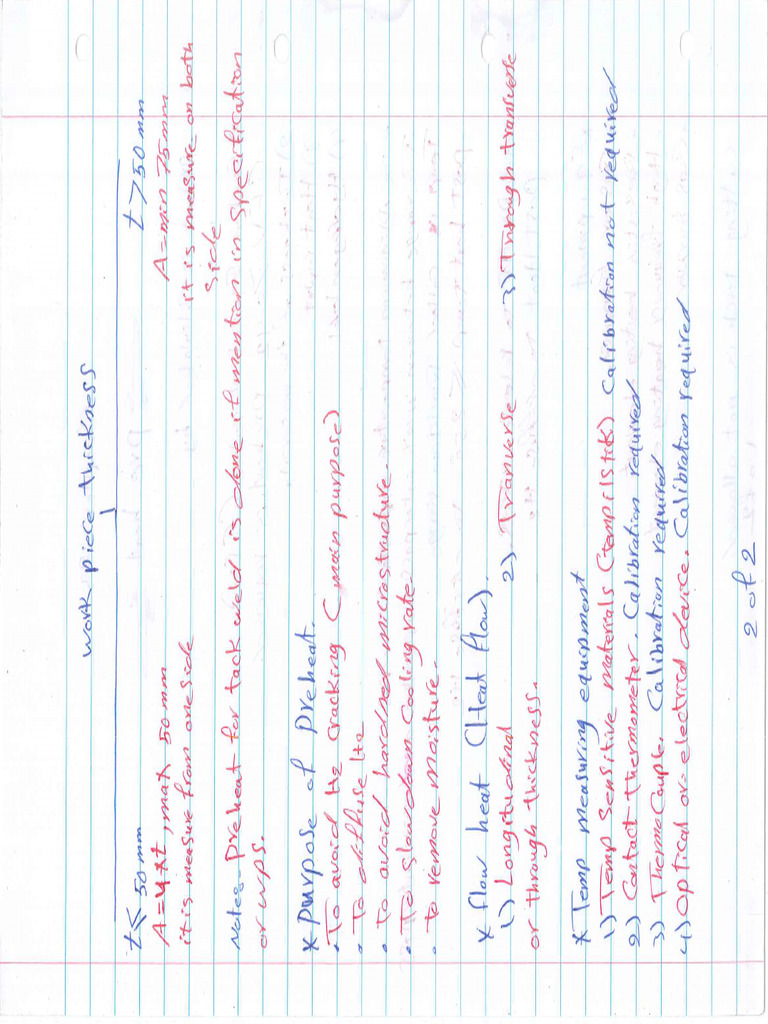 work piece thickness
t ≤ 50mm
t > 50mm
A = 4xt, max 50mm
A = min 75mm
it is measure from one side
it is measure on both
side
Notes. Preheat for tack weld is done if mention in specification
or wps.
* purpose of preheat.
• To avoid H2 cracking (main purpose)
• To diffuse H2
• to avoid hardned microstructure.
• To slow down cooling rate.
• to remove moisture.
* flow heat (Heat flow).
1) Longitudinal 2) Tranverse 3) Through tranverse
or through thickness.
* Temp measuring equipment
1) Temp sensitive materials (tempilstick) calibration not required
2) Contact thermometer. Calibration required
3) Thermo Couple. Calibration required
4) optical or electrical device. Calibration required
2 of 2